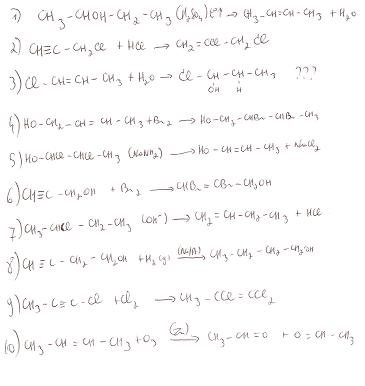 1) CH3-CHOH-CH2-CH3 (H2SO4) → CH3-CH=CH-CH3 + H2O
2) CH≡C-CH2Cl + HCl → CH2=CCl-CH2Cl
3) Cl-CH=CH-CH3 + H2O → Cl-CH-CH-CH3 ???
OH H
4) HO-CH2-CH=CH-CH3 + Br2 → HO-CH2-CHBr-CHBr-CH3
5) HO-CHCl-CHCl-CH3 (NaNH2) → HO-CH=CH-CH3 +
6) CH≡C-CH2OH + Br2 → CHBr=CBr-CH2OH
7) CH3-CHCl-CH2-CH3 (OH-) → CH2=CH-CH2-CH3 + HCl
8) CH≡C-CH2-CH2OH + H2(g) → CH3-CH2-CH2-CH2OH
9) CH3-C≡C-Cl + Cl2 → CH3-CCl=CCl2
10) CH3-CH=CH-CH3 + O3 (Zn) → CH3-CH=O + O=CH-CH3